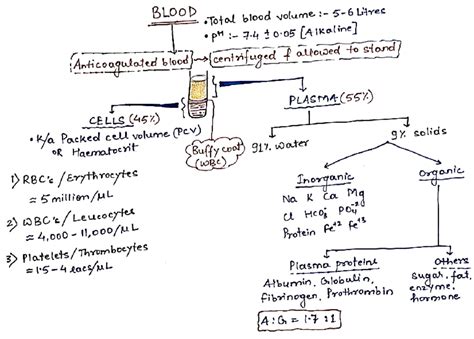 BLOOD
• Total blood volume :- 5-6 Litres
• pH :- 7.4 ± 0.05 [Alkaline]
Anticoagulated blood → centrifuged & allowed to stand
CELLS (45%)
• K/a Packed cell volume (PCV)
OR Haematocrit
1) RBC's / Erythrocytes
≈ 5 million/μL
2) WBC's / Leucocytes
≈ 4,000 - 11,000/μL
3) Platelets/Thrombocytes
≈ 1.5 - 4 lacs/μL
Buffy coat
(WBC)
PLASMA (55%)
91% water
9% solids
Inorganic
Na K Ca Mg
Cl HCO₃⁻ PO₄⁻²
Protein Fe⁺² Fe⁺³
Organic
Plasma proteins
Albumin, Globulin,
fibrinogen, Prothrombin
A : G = 1.7 : 1
Others
Sugar, fat,
enzyme,
hormone